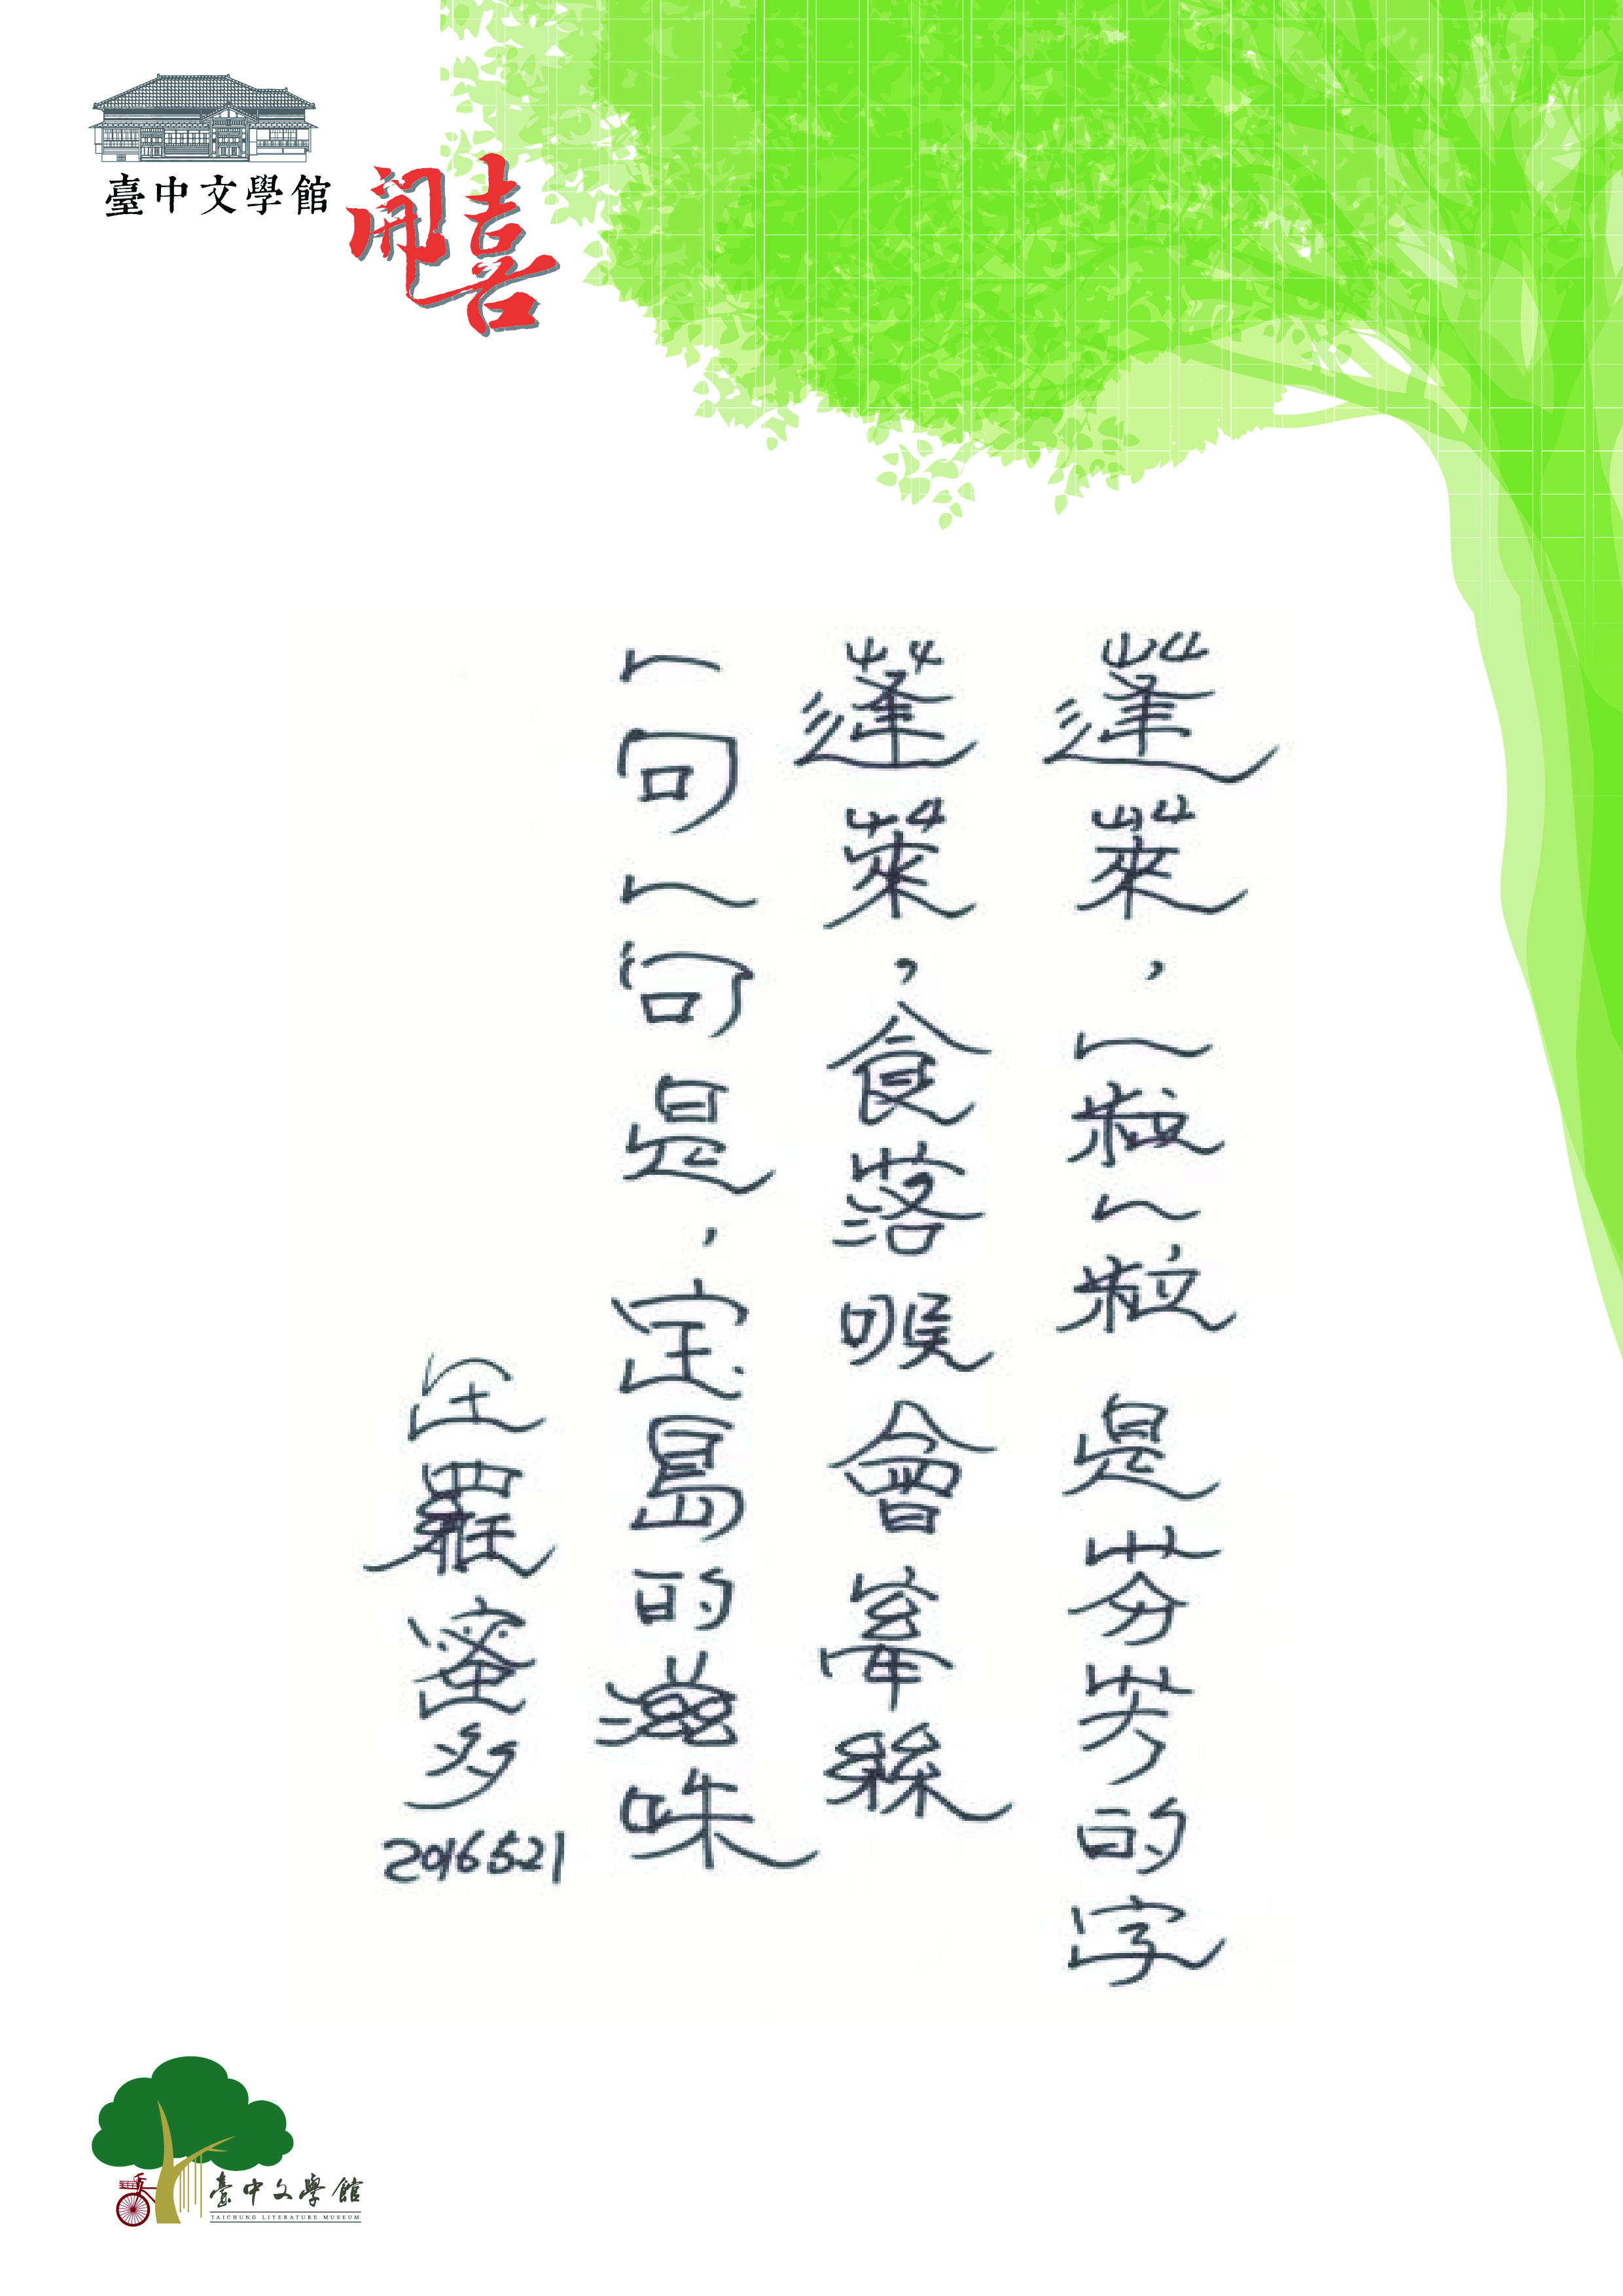 臺中文學館
開喜
蓬萊，一粒一粒是芬芳的字
蓬萊，食落喉會牽絲
一句一句是，宝島的滋味
王羅蜜多
2016521
臺中文學館
TAICHUNG LITERATURE MUSEUM